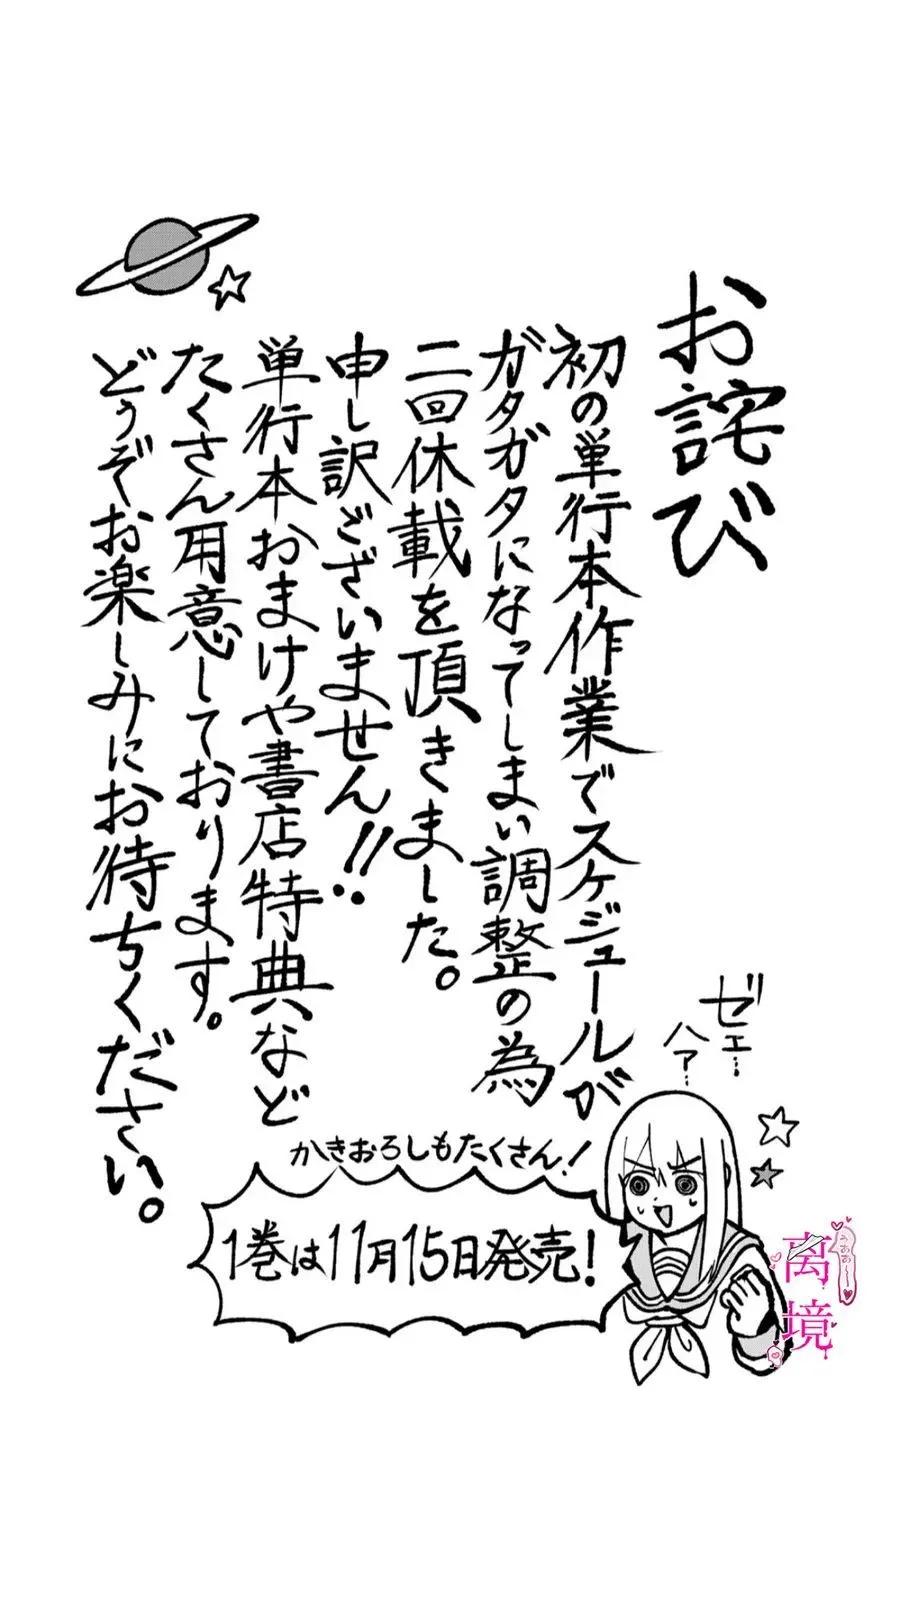 お詫び
初の単行本作業でスケジュールが
ガタガタになってしまい調整の為
二回休載を頂きました。
申し訳ございません!!
単行本おまけや書店特典など
たくさん用意しております。
どうぞお楽しみにお待ちください。
ゼェ…
ハァ…
かきおろしもたくさん!
1巻は11月15日発売!
离境